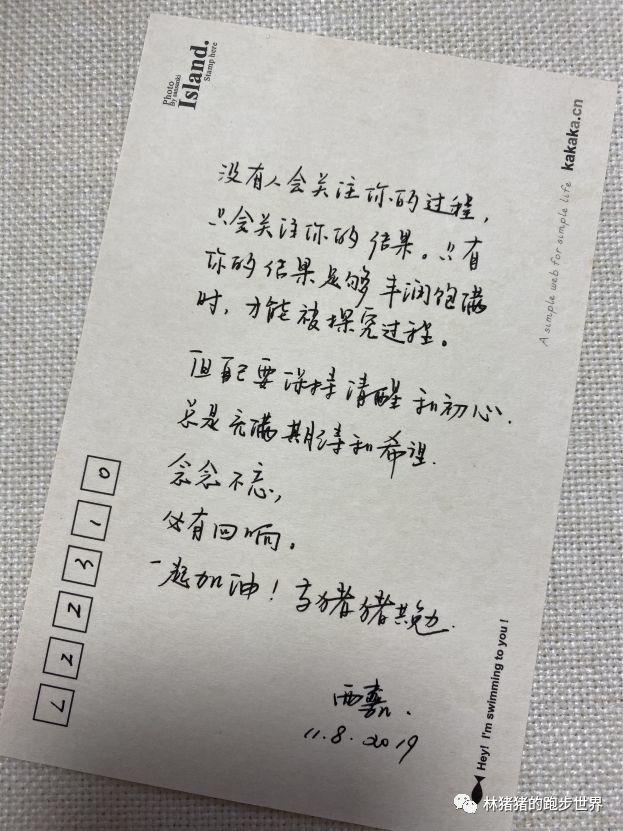 Photo
By sasasuki
Island.
Stamp here
kakaka.cn
A simple web for simple life
没有人会关注你的过程，
只会关注你的结果。只有
你的结果足够丰润饱满
时，才能被探究过程。
但自己要保持清醒和初心.
总是充满期待和希望.
念念不忘，
必有回响。
一起加油！与猪猪共勉.
11.8.2019
722310
Hey! I'm swimming to you !
林猪猪的跑步世界